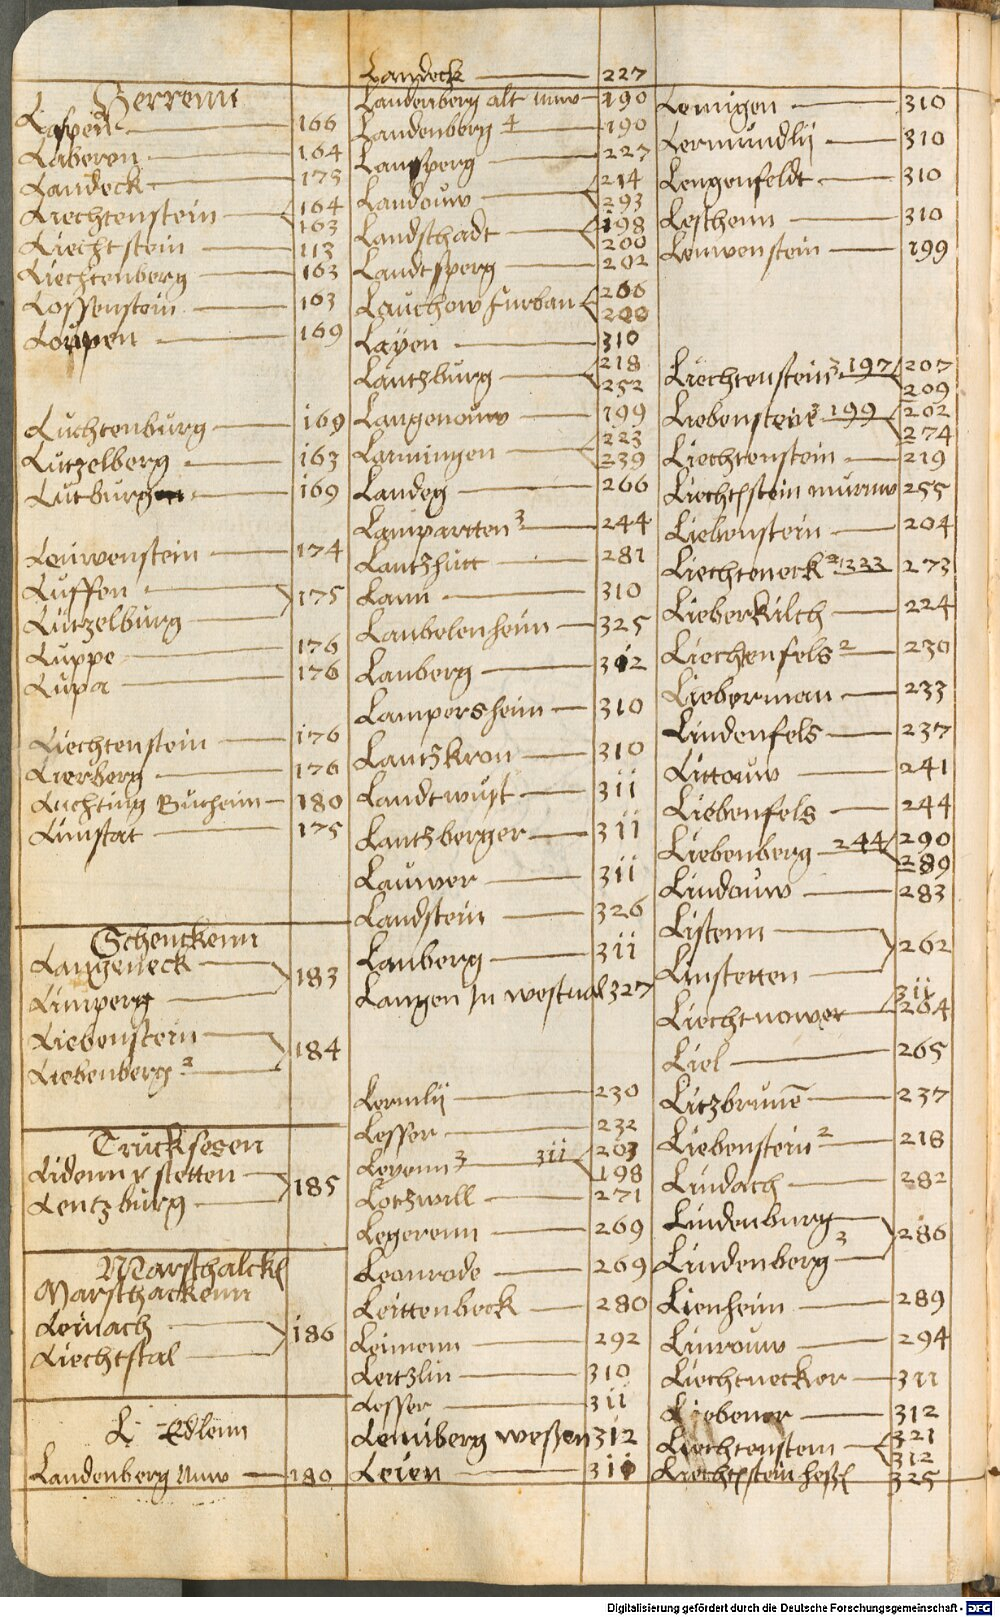 Herrenn
Laßen 166
Laberen 164
Landeck 175
Liechtenstein 164
163
Liechtstein 113
Liechtenberg 163
Lossenstein 163
Loupen 169
Luchtenburg 169
Lutzelberg 163
Lutburg 169
Leuwenstein 174
Luffen 175
Lutzelburg
Luppe 176
Lupa 176
Liechtenstein 176
Lierberg 176
Luchting Bucheim 180
Limstat 175
Schenckenn
Langeneck 183
Limperg
Liebenstein 184
Liebenberg 2
Trucksesen
Lidenn stetten 185
Lentzburg
Marschalck
Marschackenn
Leinach 186
Liechtstal
L Edlenn
Landenberg nuw 180
Landeck 227
Landenberg alt nuw 190
Landenberg 4 190
Landsperg 227
Landouw 214
293
Landschadt 198
200
Landtsperg 202
Lauchow furban 206
208
Layen 310
Lantzburg 218
252
Langenouw 199
Lanningen 223
239
Landeg 266
Lamparten 3 244
Lantzhut 281
Lann 310
Laubelenheim 325
Lanberg 312
Lampersheim 310
Lantzkron 310
Landtwust 311
Lantzberger 311
Lauwer 311
Landstein 326
Lanberg 311
Langen In westual 327
Lermly 230
Lesser 232
Leyenn 3 311 203
198
Lotzwill 271
Legerenn 269
Leonrode 269
Leittenbeck 280
Leimenn 292
Leitzlin 310
Lesser 311
Lemberg weßen 312
Leien 311
Lenigen 310
Lermundly 310
Lengenfeldt 310
Leschenn 310
Leuwenstein 199
Liechtenstein 3 197 207
209
Liebenstein 3 199 202
274
Liechtenstein 219
Liechtstein murnw 255
Liebenstein 204
Liechteneck 2 333 273
Lieberkilch 224
Liechtenfels 2 230
Lieberman 233
Lindenfels 237
Littouw 241
Liebenfels 244
Liebenberg 244 290
289
Lindouw 283
Listenn 262
Linstetten
Liechtnower 311
264
Liel 265
Litzbrunē 237
Liebenstein 2 218
Lindach 282
Lindenburg 286
Lindenberg 3
Lienheim 289
Linrouw 294
Liechtnecker 311
Liebener 312
Liechtenstein 321
312
Liechtstein heß 325
Digitalisierung gefördert durch die Deutsche Forschungsgemeinschaft - DFG